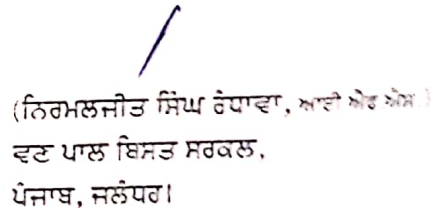 (ਨਿਰਮਲਜੀਤ ਸਿੰਘ ਰੰਧਾਵਾ, ਆਈ ਐਫ ਐਸ.)
ਵਣ ਪਾਲ ਬਿਸਤ ਸਰਕਲ,
ਪੰਜਾਬ, ਜਲੰਧਰ।